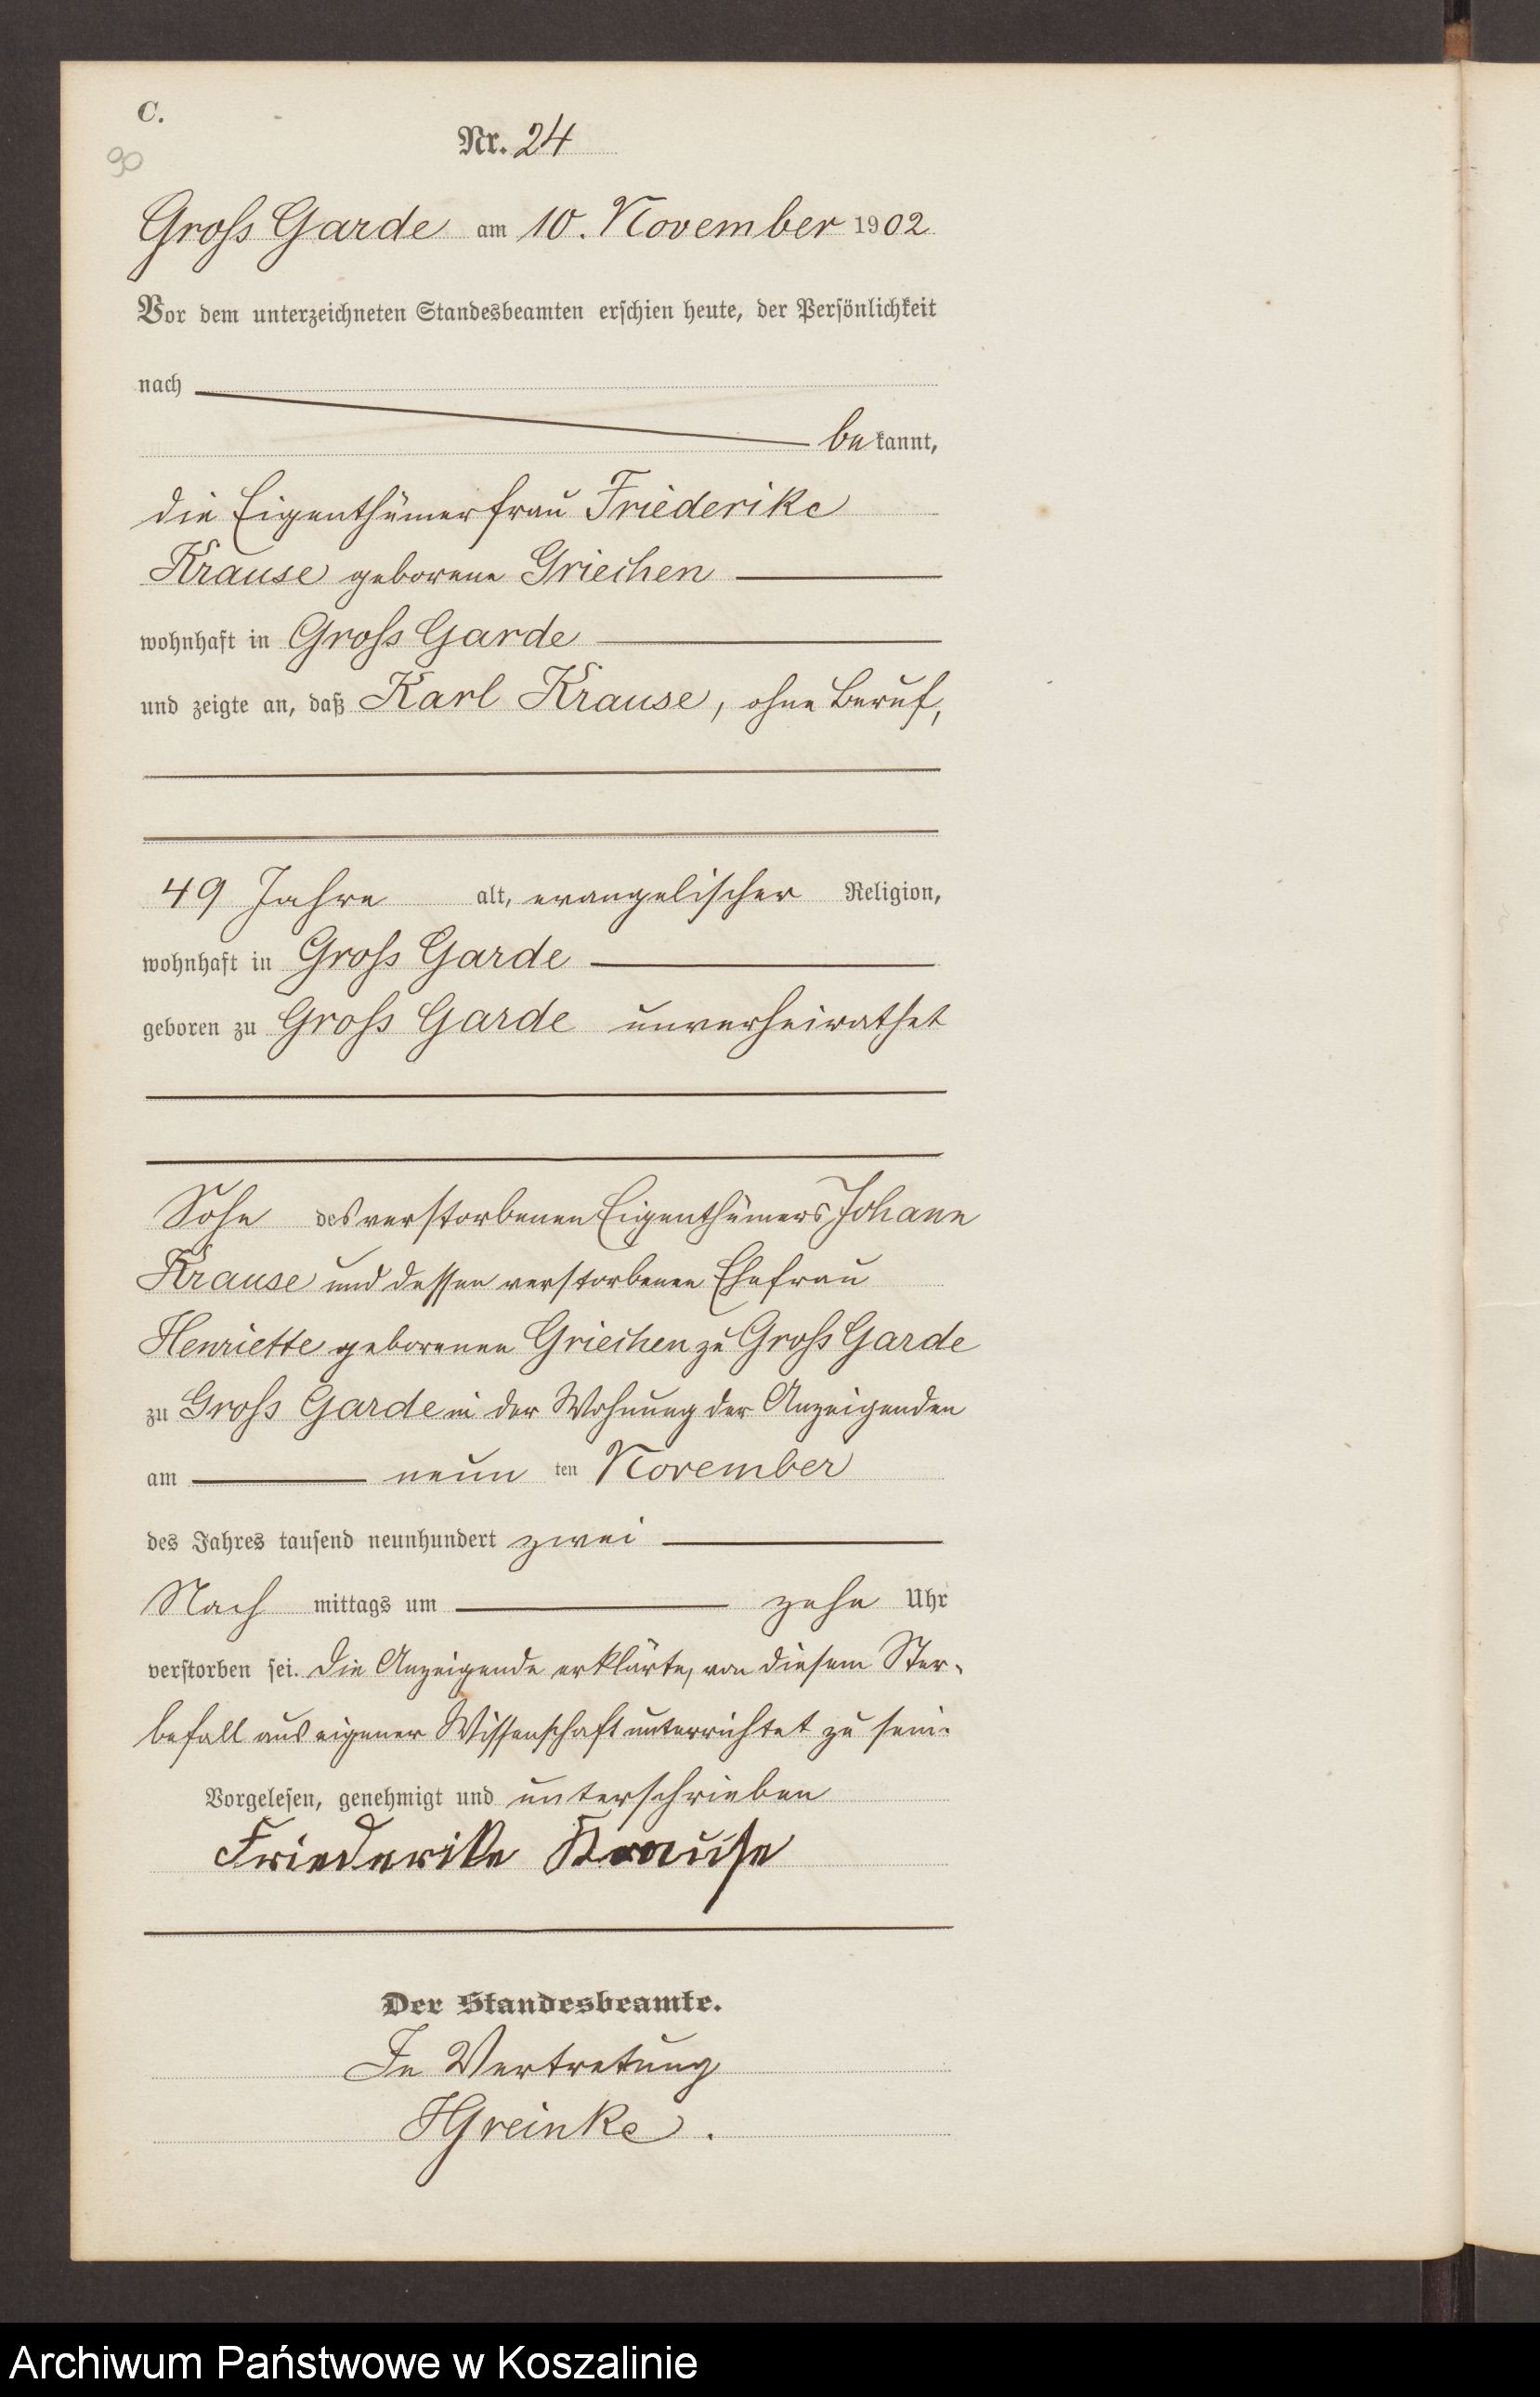 C.
90
Nr. 24
Gross Garde am 10. November 1902
Vor dem unterzeichneten Standesbeamten erschien heute, der Persönlichkeit
nach
bekannt,
die Eigenthümerfrau Friederike
Krause geborene Griechen
wohnhaft in Gross Garde
und zeigte an, daß Karl Krause, ohne Beruf,
49 Jahre alt, evangelischer Religion,
wohnhaft in Gross Garde
geboren zu Gross Garde unverheirathet
Sohn des verstorbenen Eigenthümers Johann
Krause und dessen verstorbenen Ehefrau
Henriette geborenen Griechen zu Gross Garde
zu Gross Garde in der Wohnung der Anzeigenden
am neun ten November
des Jahres tausend neunhundert zwei
Nach mittags um zehn Uhr
verstorben sei. Die Anzeigende erklärte, von diesem Ster-
befall aus eigener Wissenschaft unterrichtet zu sein.
Vorgelesen, genehmigt und unterschrieben
Friederike Krause
Der Standesbeamte.
In Vertretung
HGreinke.
Archiwum Państwowe w Koszalinie